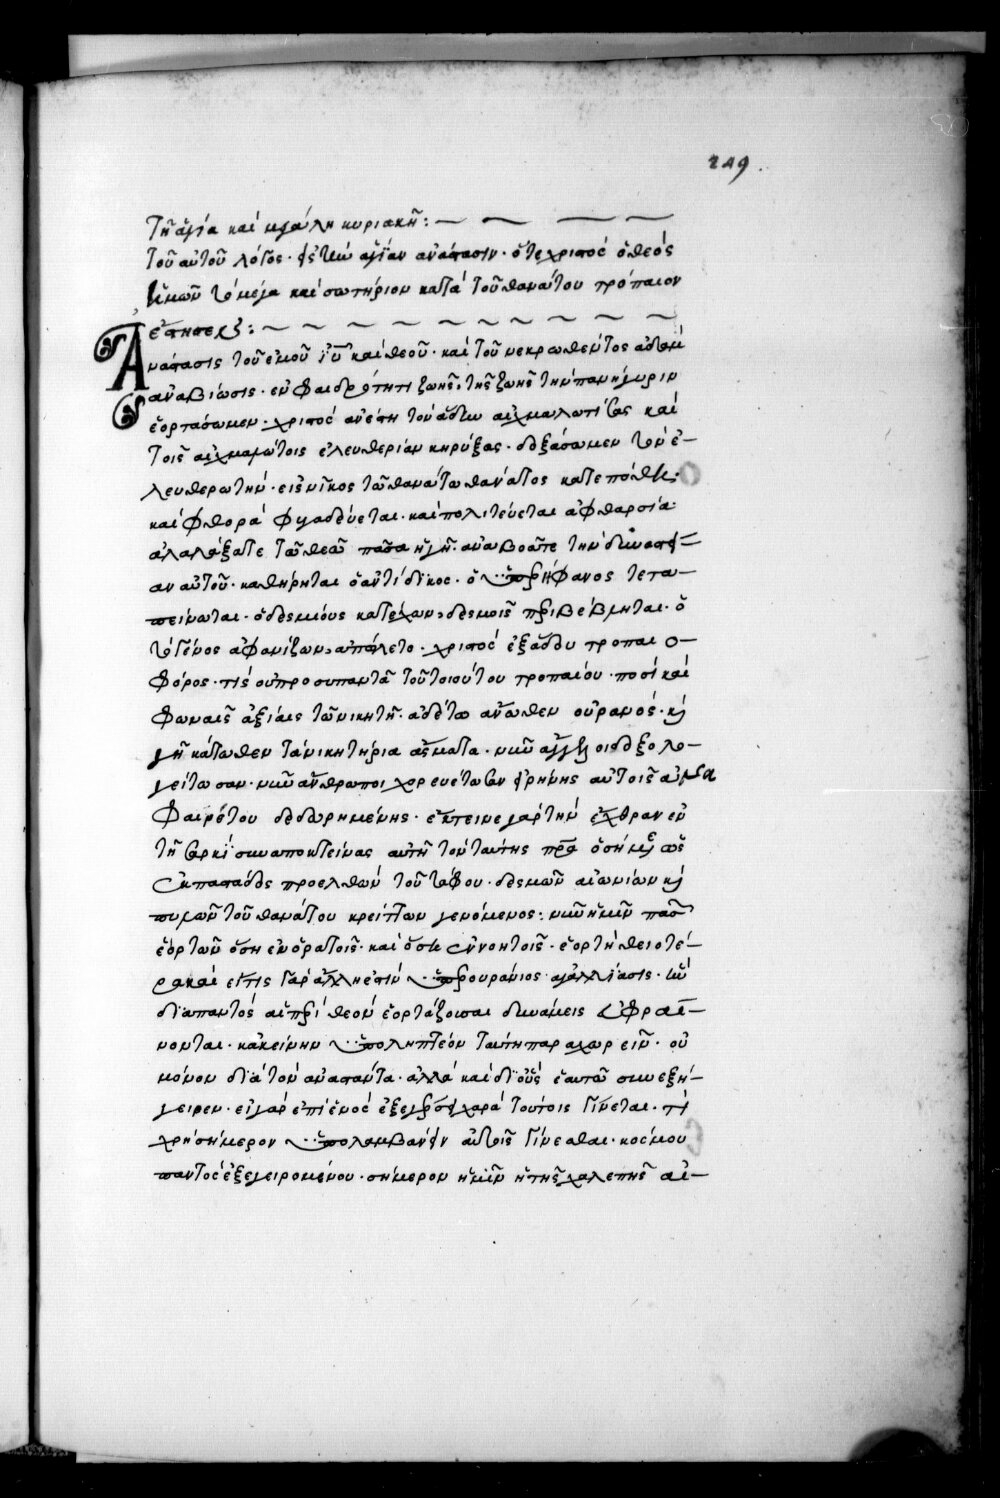 249.
Τῆ ἁγία καὶ μεγάλη κυριακῆ :
Τοῦ αὐτοῦ λόγος · εἰς τὴν ἁγίαν ἀνάστασιν · ὅτε χριστὸς ὁ θεὸς
ἡμῶν τὸ μέγα καὶ σωτήριον κατὰ τοῦ θανάτου τρόπαιον
ἔστησεν :
Ἀνάστασις τοῦ ἐμοῦ ἰυ καὶ θεοῦ · καὶ τοῦ νεκρωθέντος ἀδὰμ
ἀναβίωσις · ἐν φαιδρότητι ζωῆς, τῆς ζωῆς τὴν πανήγυριν
ἑορτάσωμεν · χριστὸς ἀνέστη τὸν ἅδην αἰχμαλωτίσας καὶ
τοῖς αἰχμαλώτοις ἐλευθερίαν κηρύξας · δοξάσωμεν τὸν ἐ-
λευθερωτήν · εἰς νῖκος τῶ θανάτω θάνατος κατεπόθη ·
καὶ φθορὰ φυγαδεύεται · καὶ πολιτεύεται ἀφθαρσία ·
ἀλαλάξατε τῶ θεῶ πᾶσα ἡ γῆ · ἀναβοᾶτε τὴν δυναστεί-
αν αὐτοῦ · καθήρηται ὁ ἀντίδικος · ὁ ὑπερήφανος τετα-
πείνωται · ὁ δεσμίους κατέχων, δεσμοῖς περιβέβληται · ὁ
τὸ γένος ἀφανίζων, ἀπώλετο · χριστὸς ἐξ ἅδου τροπαιο-
φόρος · τίς οὐ προσυπαντᾶ τοῦ τοιούτου τροπαίου · ποσὶ καὶ
φωναῖς ἀξίαις τῶ νικητῆ · ἀδέτω ἄνωθεν οὐρανός · κὶ
γῆ κάτωθεν τὰ νικητήρια ἄσματα · νῦν ἄγγελοι δοξολο-
γείτωσαν · νῦν ἄνθρωποι χορευέτωσαν εἰρήνης αὐτοῖς ἅμα
δεδωρημένης · ἔκτεινε γὰρ τὴν ἔχθραν ἐν
τῆ σαρκὶ συναποκτείνας αὐτῆ τὸν ταύτης πρα ὁ σήμερον ὡς
ἐκ παστάδος προελθὼν τοῦ τάφου · δεσμῶν αἰωνίων κὶ
πυλῶν τοῦ θανάτου κρείττων γενόμενος : νῦν ἡμῖν πασῶν
ἑορτῶν ὅση ἐν ὁρατοῖς · καὶ ὅση ἐν νοητοῖς · ἑορτὴ θειοτέ-
ρα καὶ εἴ τις γὰρ ἄλλη ἐστὶν ὑπερουράνιος ἀγαλλίασις · ἣν
διαπαντὸς αἱ περὶ θεὸν ἑορτάζουσαι δυνάμεις εὐφραί-
νονται · κἀκείνην ὑποληπτέον ταύτη παραχωρεῖν · οὐ
μόνον διὰ τὸν ἀναστάντα · ἀλλὰ καὶ δι οὓς ἑαυτῶ συνεξή-
γειρεν · εἰ γὰρ ἐπὶ ἑνὸς χαρὰ τούτοις γίνεται · τί
χρὴ σήμερον ὑπολαμβάνειν αὐτοῖς γίνεσθαι · κόσμου
παντὸς ἐξεγειρομένου · σήμερον ἡμῖν ἡ τῆς χαλεπῆς αἰ-